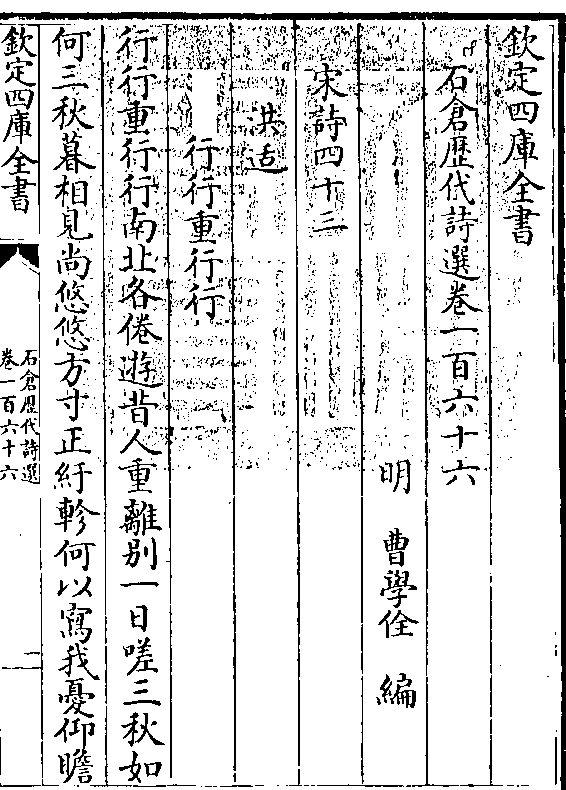 欽定四庫全書
石倉歴代詩選卷一百六十六
明　曹學佺　編
宋詩四十三
洪适
行行重行行
行行重行行南北各倦遊昔人重離别一日嗟三秋如
何三秋暮相見尚悠悠方寸正紆軫何以寫我憂仰瞻
欽定四庫全書
石倉歴代詩選
卷一百六十六
一